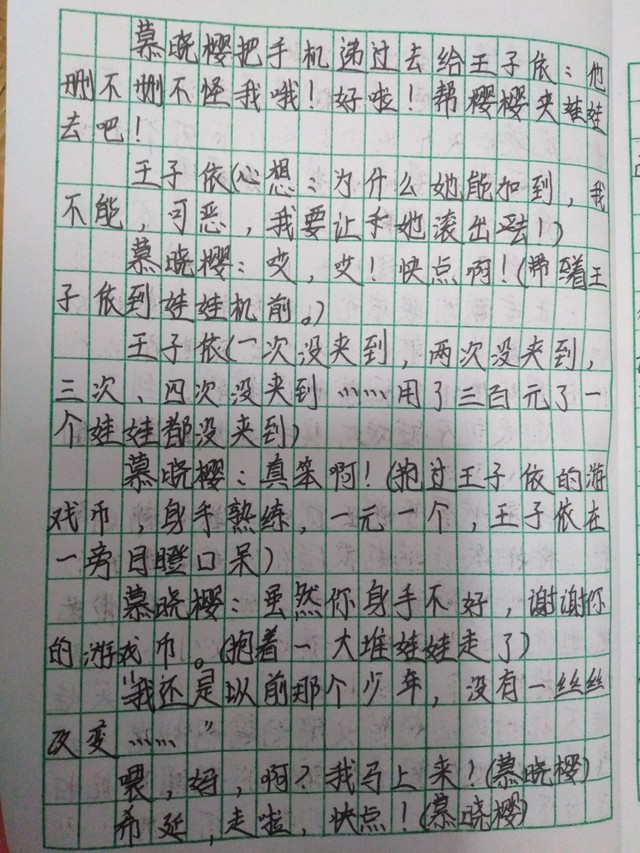 慕晓樱把手机递过去给王子依：他
删不删不怪我哦！好啦！帮樱樱夹娃娃
去吧！
王子依（心想：为什么她能加到，我
不能，可恶，我要让她滚出去！）
慕晓樱：哎，哎！快点啊！（带着王
子依到娃娃机前。）
王子依（一次没夹到，两次没夹到，
三次、四次没夹到……用了三百元了一
个娃娃都没夹到）
慕晓樱：真笨啊！（抱过王子依的游
戏币，身手熟练，一元一个，王子依在
一旁目瞪口呆）
慕晓樱：虽然你身手不好，谢谢你
的游戏币。（抱着一大堆娃娃走了）
“我还是以前那个少年，没有一丝丝
改变……”
喂，好，啊？我马上来！（慕晓樱）
希延，走啦，快点！（慕晓樱）